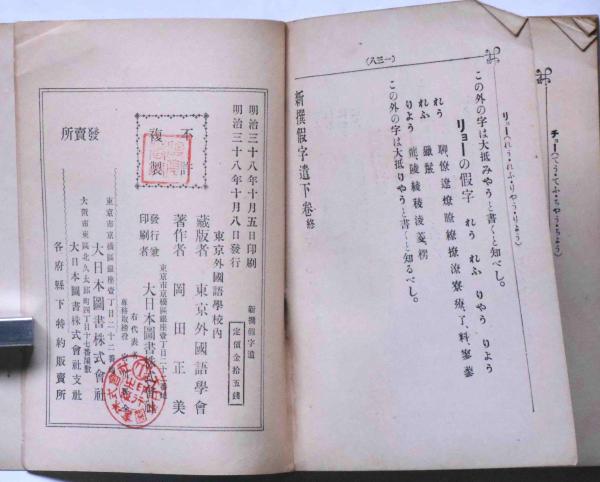 チョー(てうてふちやうちよう)
リョー(れうれふりやうりよう)
(一三八)
この外の字は大抵みやうと書くと知べし。
リョーの假字 れう れふ りやう りよう
れう 聊僚遼燎瞭繚撩潦寮療、了、料、寥蓼
れふ 獵鬣
りよう 龍、陵綾稜淩菱、楞
この外の字は大抵りやうと書くと知るべし。
新撰假字遣下卷終
新撰假字遣
定價金拾五錢
明治三十八年十月五日印刷
明治三十八年十月八日發行
不許複製
東京外國語學校内
藏版者 東京外國語學會
著作者 岡田正美
東京市京橋區銀座壹丁目二十二番地
發行兼印刷者 大日本圖書株式會社
右代表者
專務取締役
發賣所
東京市京橋區銀座壹丁目二十二番地
大日本圖書株式會社
大阪市東區北久太郎町四丁目十七番屋敷
大日本圖書株式會社支社
各府縣下特約販賣所